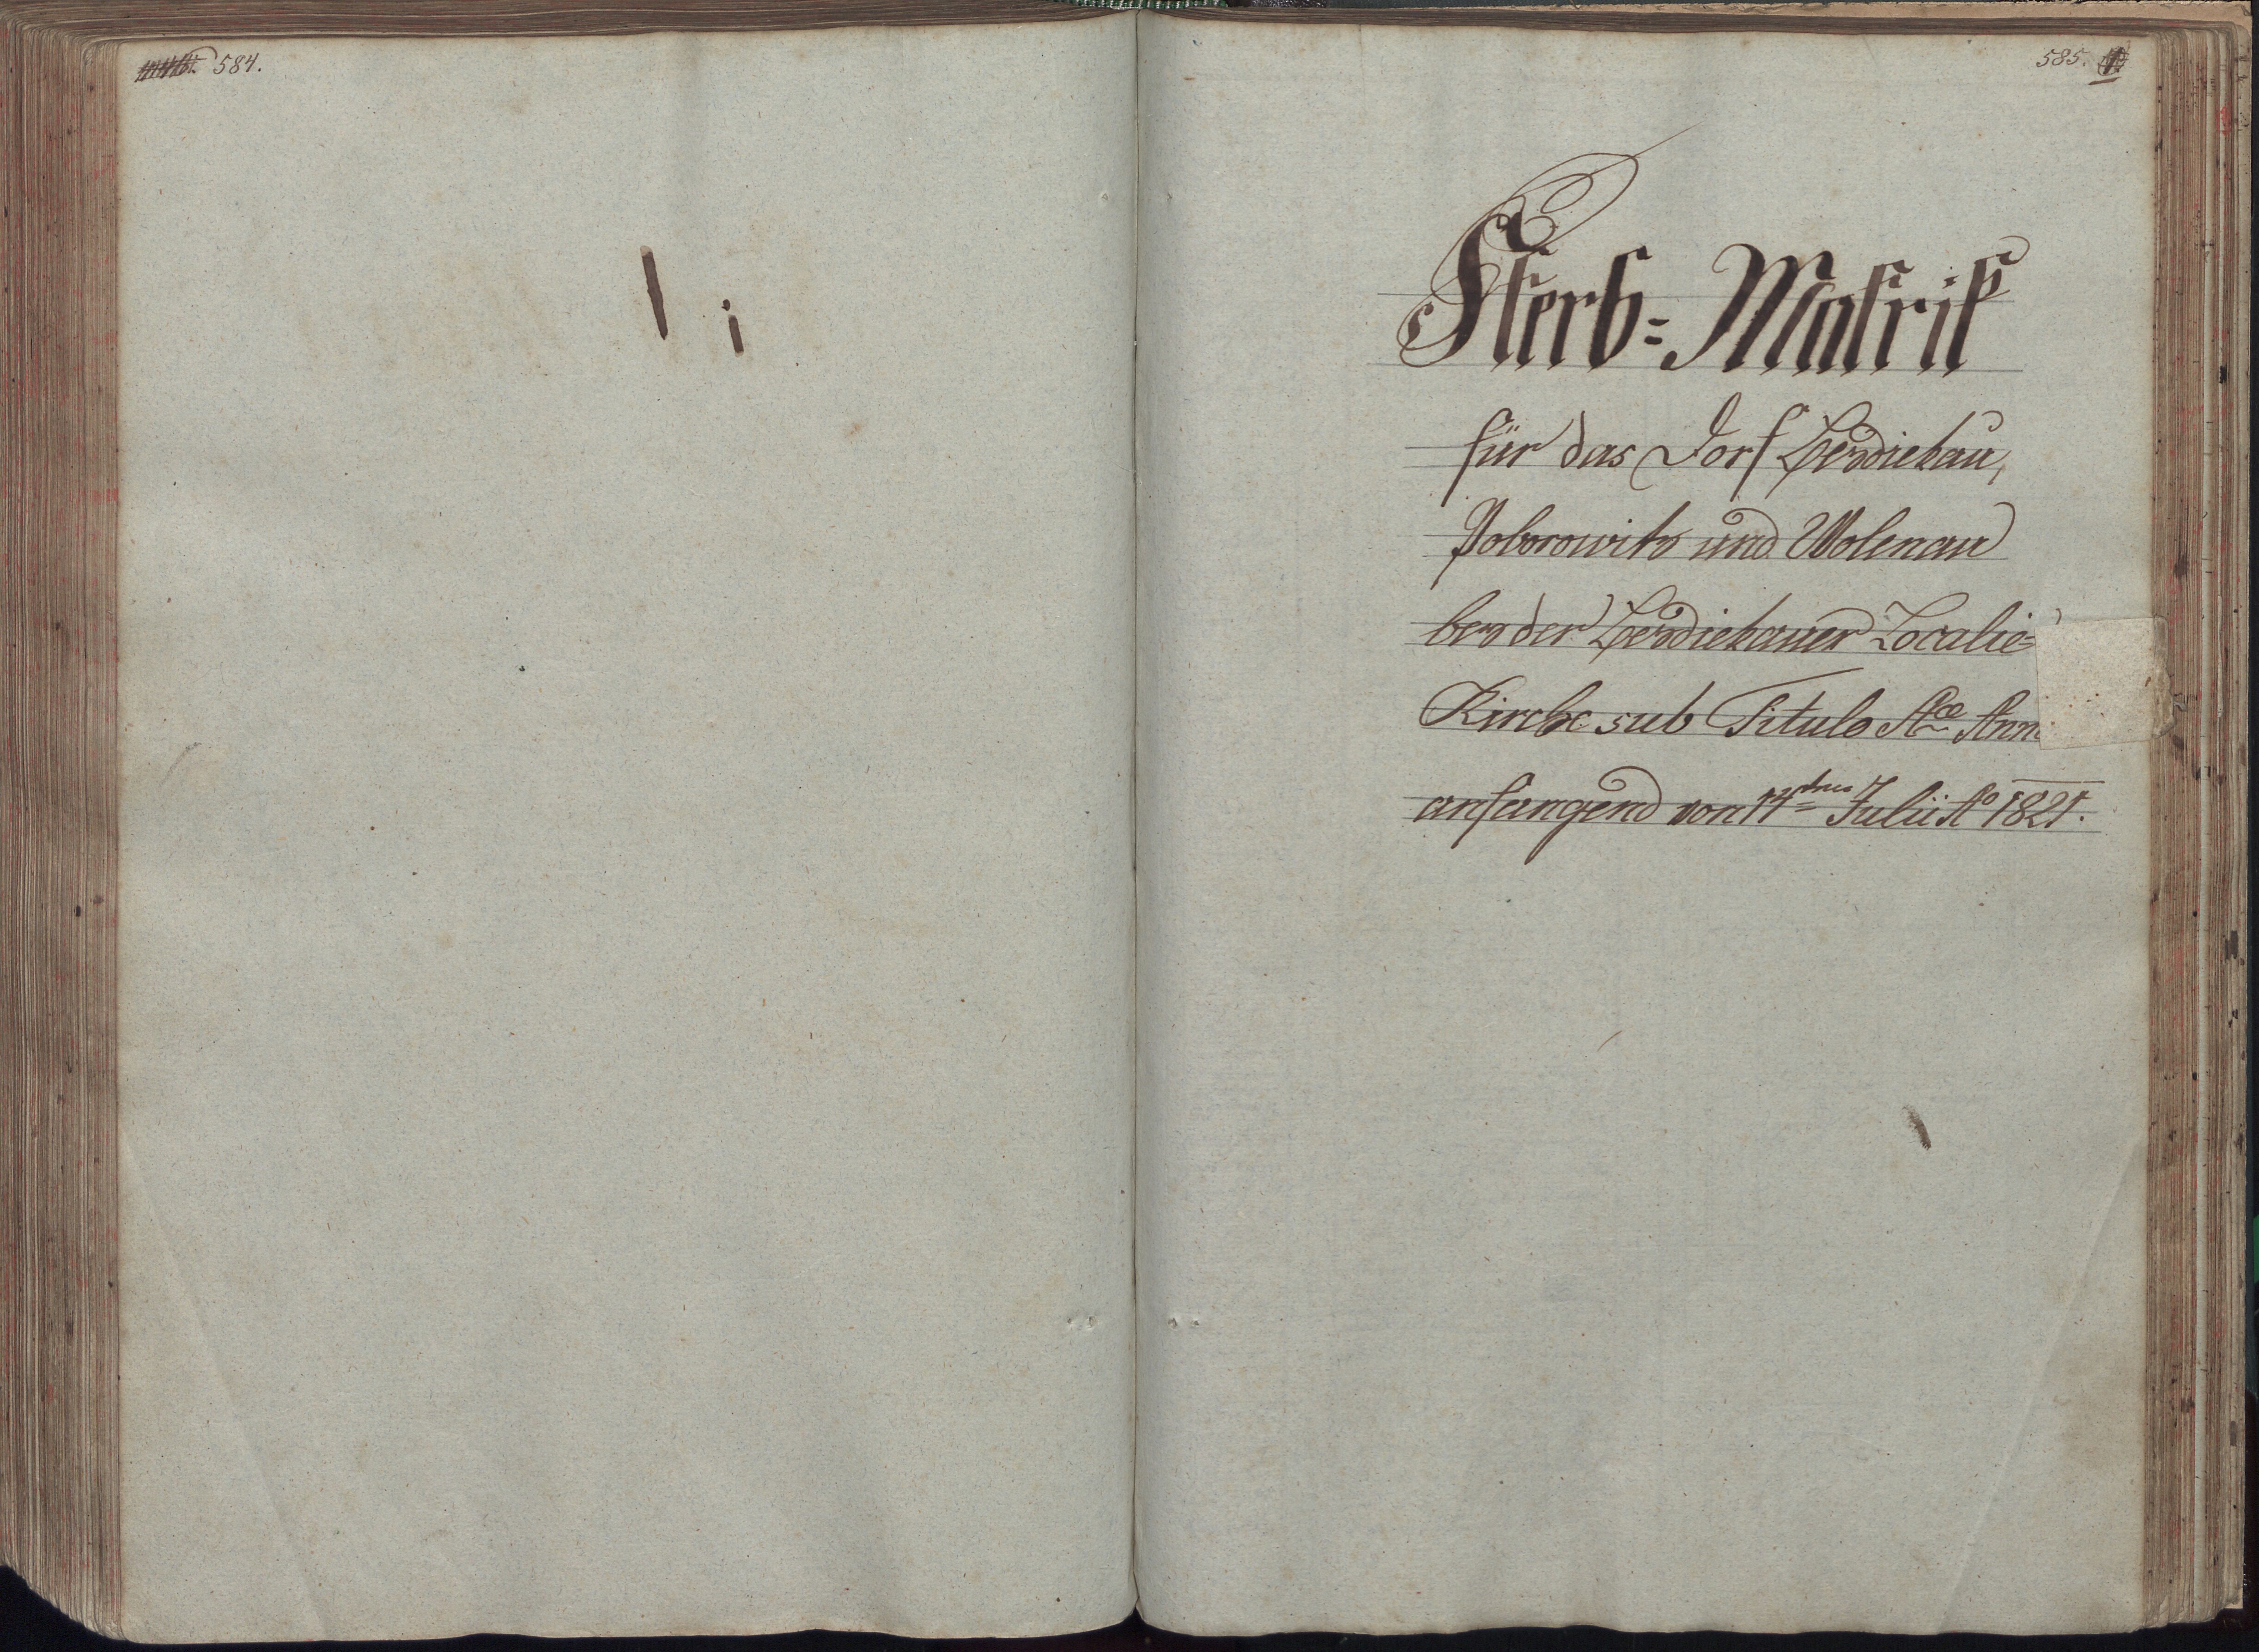 584.
585.
Sterb=Matrik
für das Dorf Zerdiekau,
Poborowitz und Wolenau
bey der Zerdiekauer Localie=
Kirche sub Titulo Stae Ann
anfangend von 14ten Julii Ao 1821.